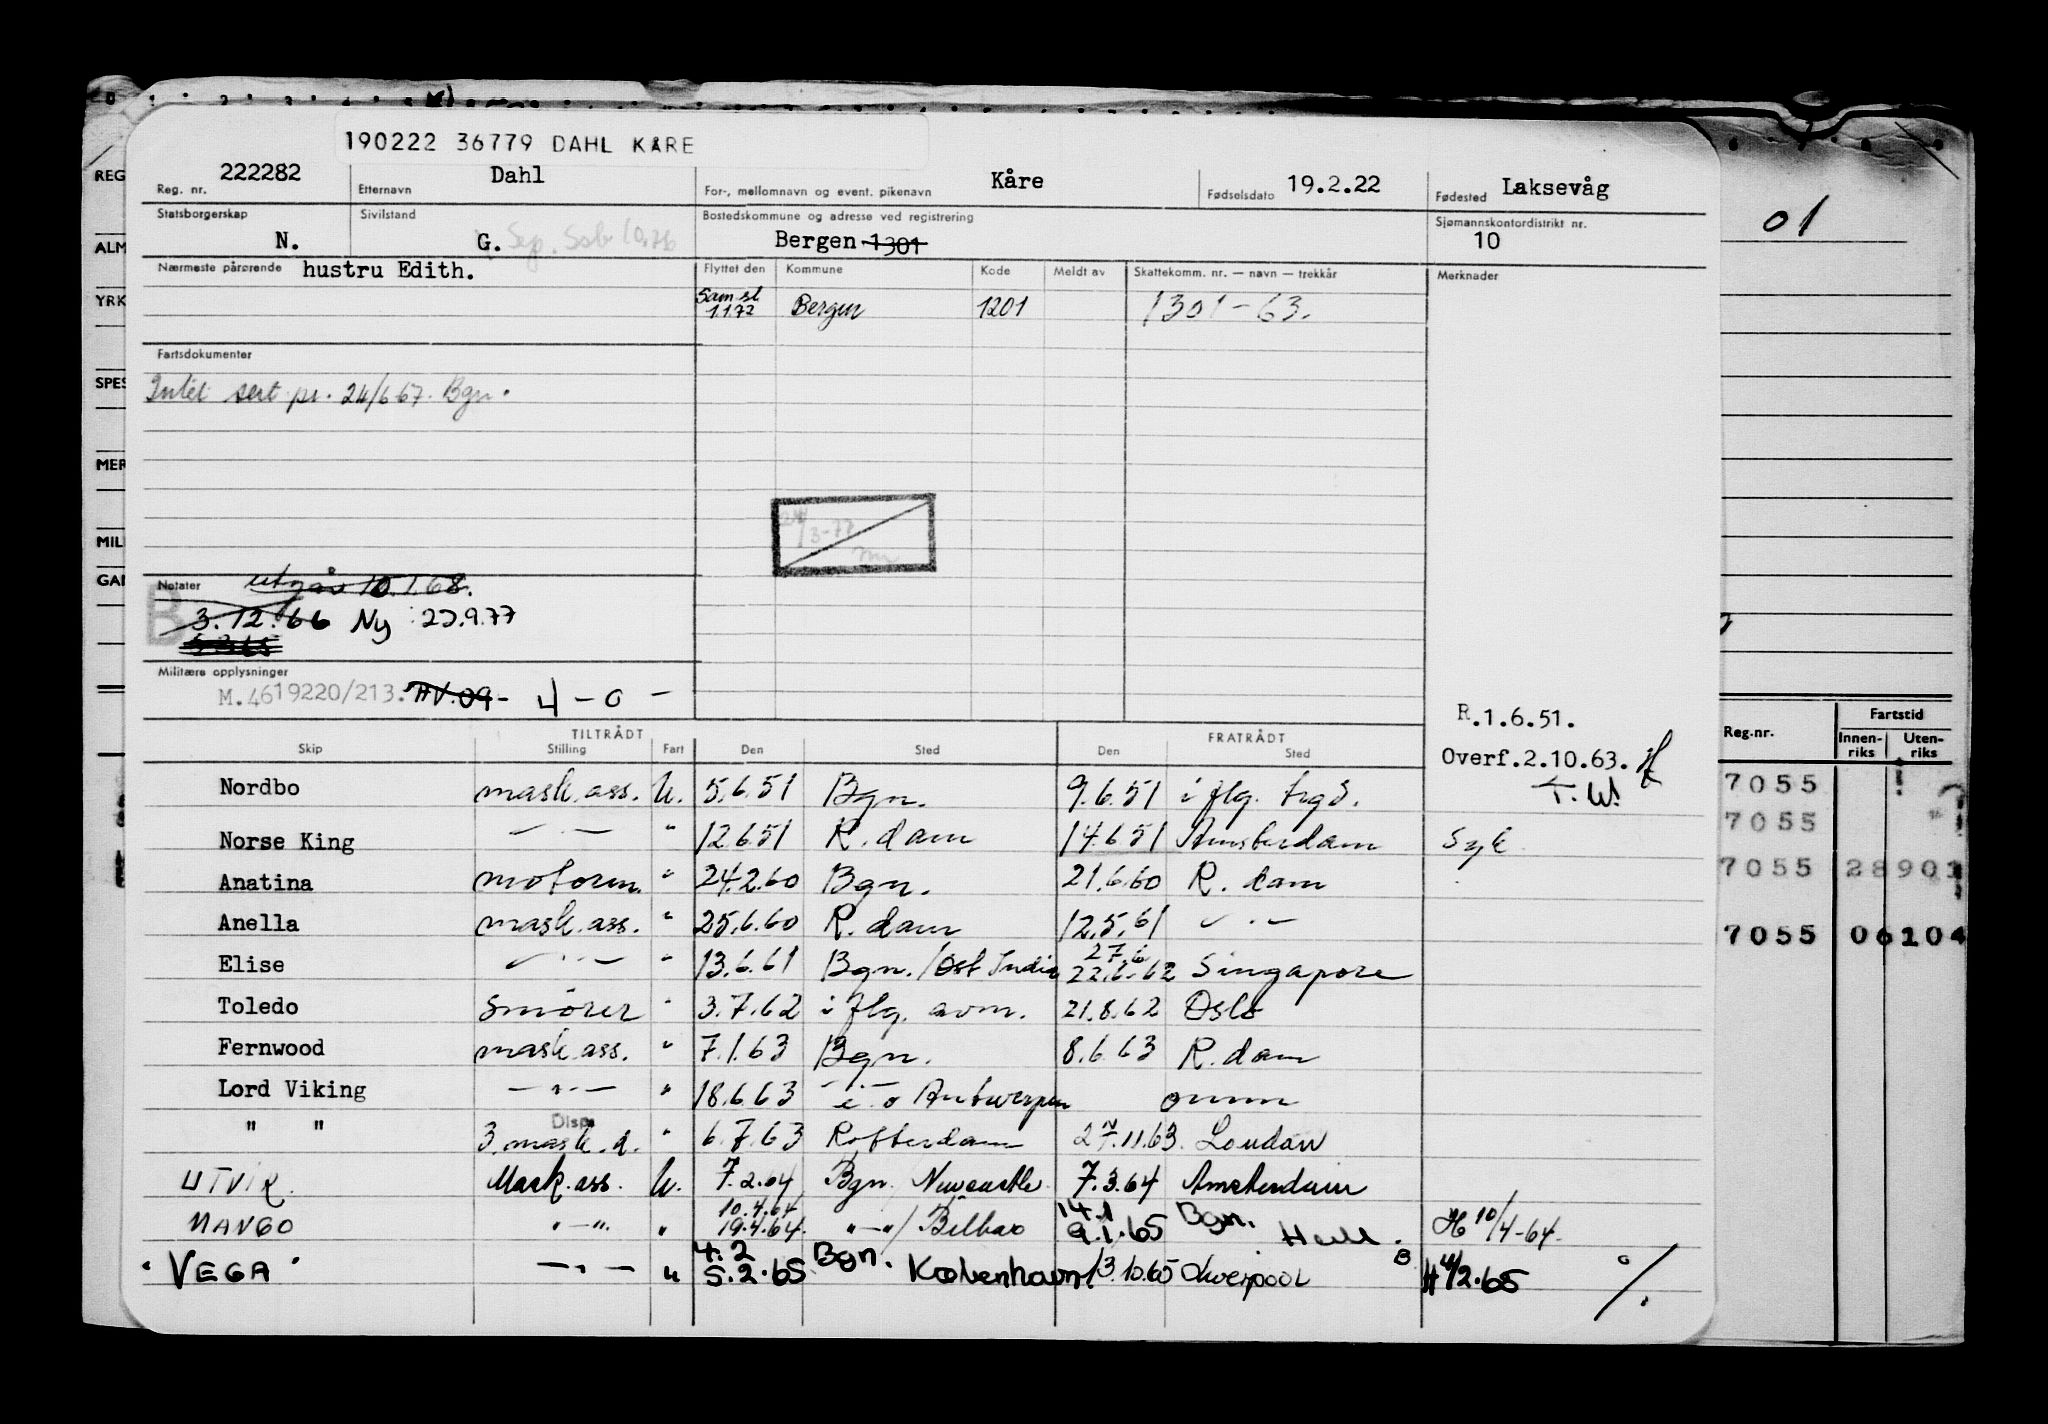 190222 36779 DAHL KÅRE
Reg. nr. 222282 Etternavn Dahl For-, mellomnavn og event. pikenavn Kåre Fødselsdato 19.2.22 Fødested Laksevåg
Statsborgerskap N. Sivilstand G. Sep. Bostedskommune og adresse ved registrering Bergen 1301 Sjømannskontordistrikt nr. 10
01
Nærmeste pårørende hustru Edith. Flyttet den Kommune Kode Meldt av Skattekomm. nr. — navn — trekkår Merknader
Sam.sl 1.1.72 Bergen 1201 1301-63.
Fartsdokumenter
sert pr. 24/6 67. Bgn.
Notater utgår 10.1.68.
B 3.12.66 Ny : 23.9.77
Militære opplysninger
M.4619220/213. HV.09- 4-0-
R.1.6.51.
Overf.2.10.63.
T.W.
TILTRÅDT FRATRÅDT
Skip Stilling Fart Den Sted Den Sted
Nordbo mask.ass. U. 5.6.51 Bgn. 9.6.51 i flg.
Norse King — " — " 12.6.51 R.dam 14.6.51 Amsterdam Syk
Anatina motorm. " 24.2.60 Bgn. 21.6.60 R.dam
Anella mask.ass. " 25.6.60 R.dam 12.5.61 — " —
Elise — " — " 13.6.61 Bgn./Øst India 27.6 22.6.62 Singapore
Toledo Smører " 3.7.62 i flg. avm. 21.8.62 Oslo
Fernwood mask.ass. " 7.1.63 Bgn. 8.6.63 R.dam
Lord Viking — " — " 18.6.63 — " — Antwerpen omm
" " Disp. 3. mask. " 6.7.63 Rotterdam 27.11.63. London
UTVIK. Mask.ass. U. 7.2.64 Bgn/Newcastle. 7.3.64 Amsterdam
MANGO " — " " 10.4.64 19.4.64 " — " / Bilbao 14.1 9.1.65 Bgn. Hull. H 10/4-64.
"VEGA" — " — " 4.2 5.2.65 Bgn. København. 13.10.65 Liverpool B H 4/2.65 %
REG
ALM
YRK
SPES
MER
MIL
GAI
Reg.nr. Fartstid
Innen-riks Uten-riks
7055
7055
7055 28901
7055 06104